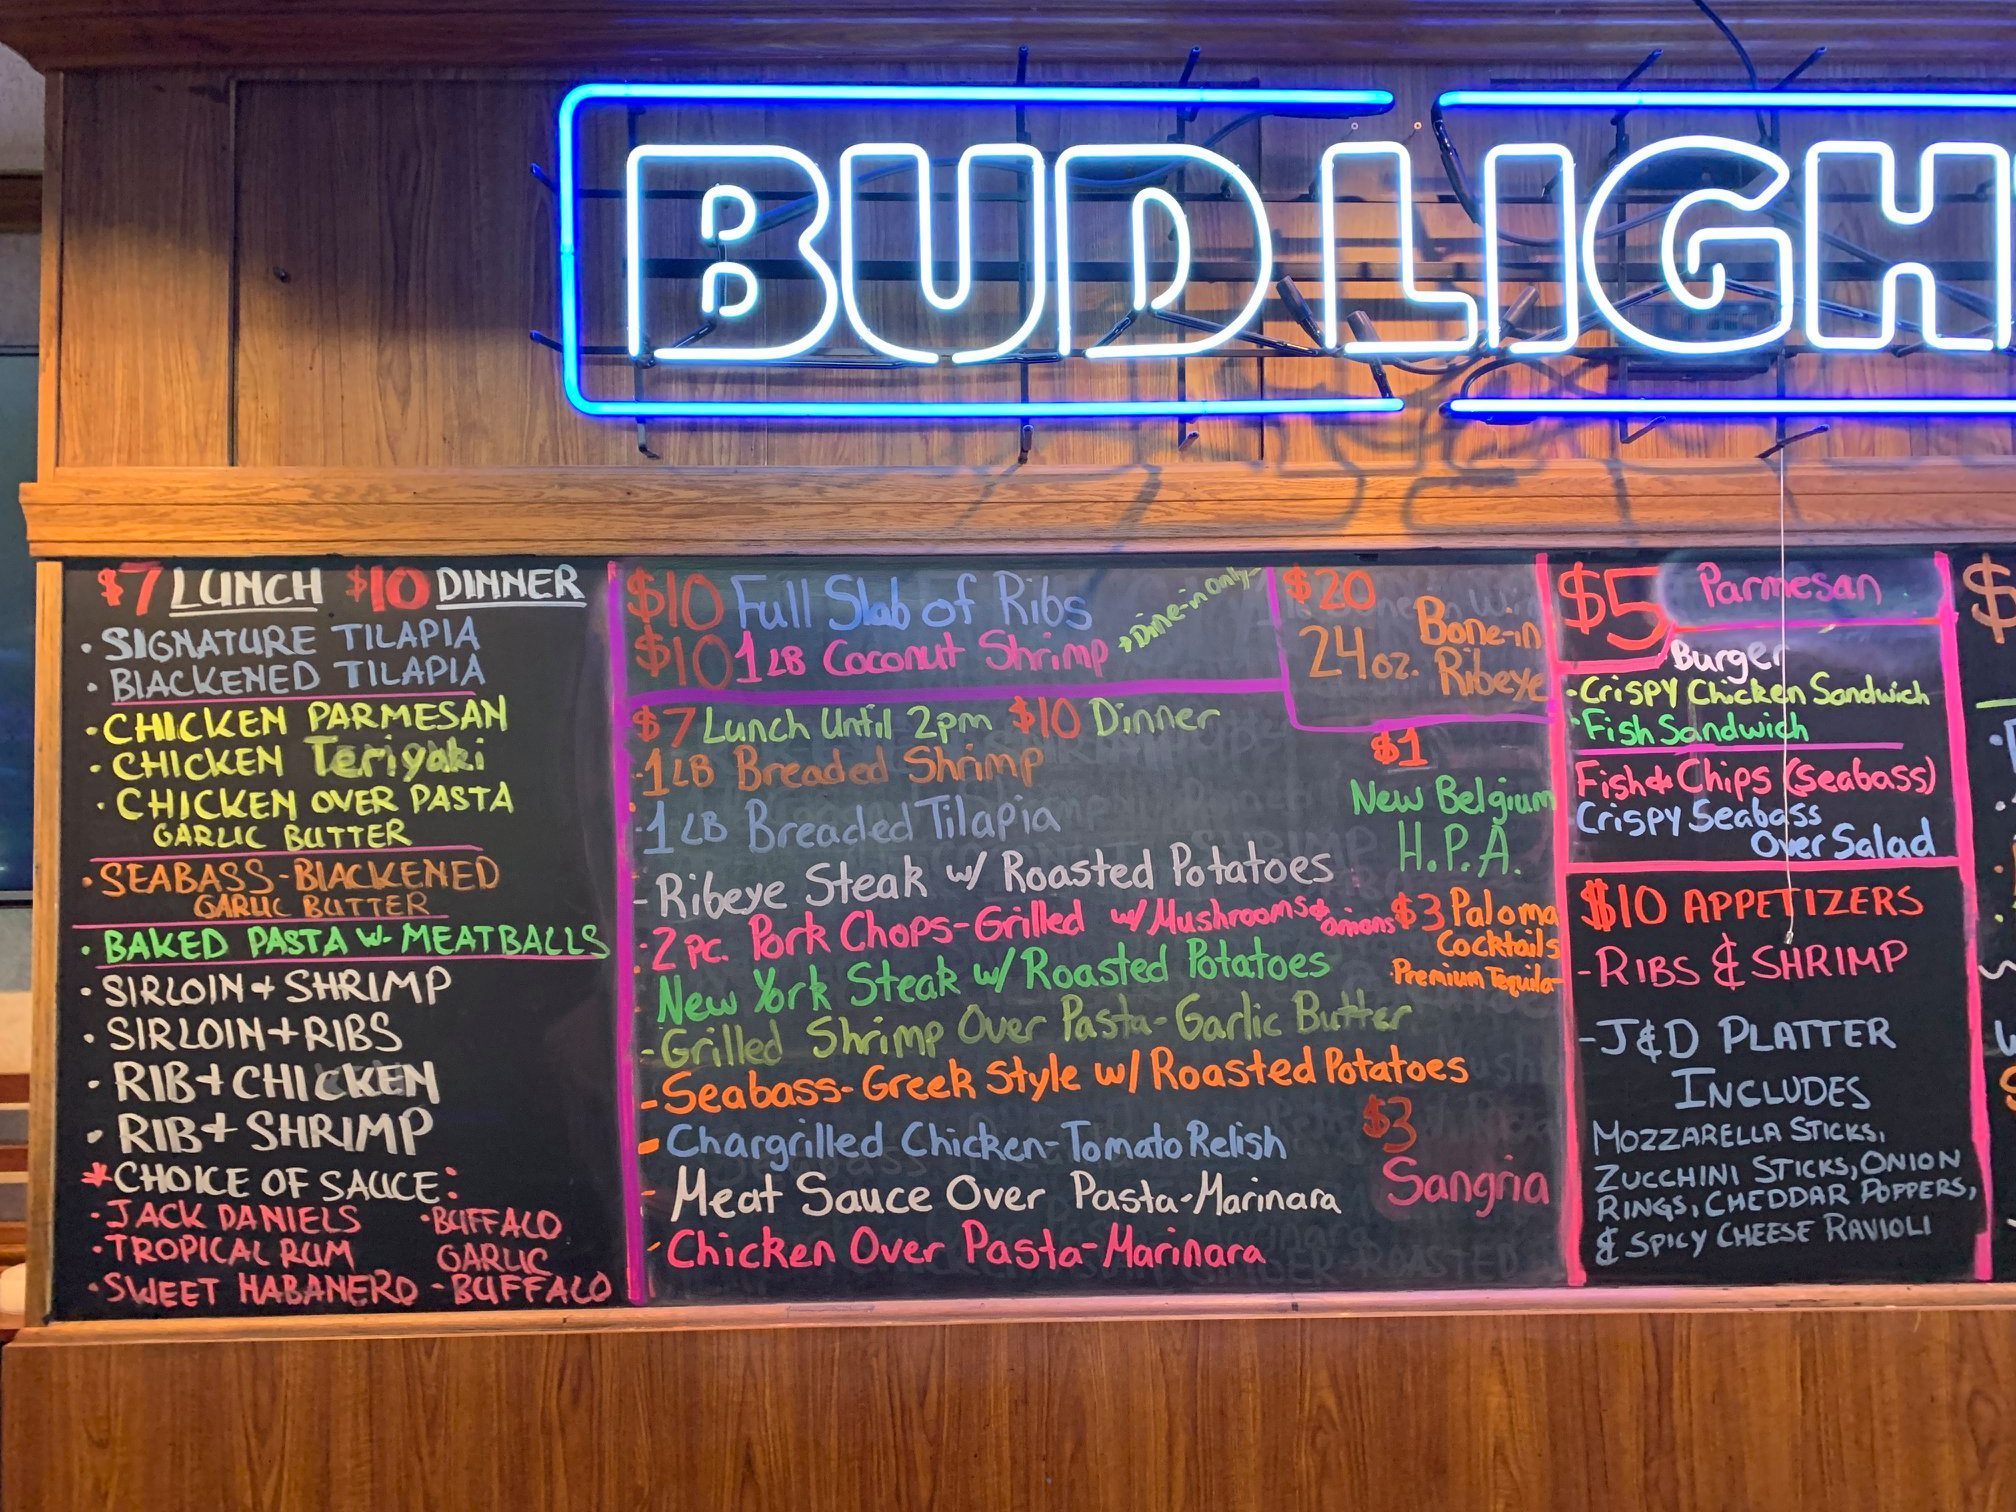 BUD LIGH
$7 LUNCH $10 DINNER
• SIGNATURE TILAPIA
• BLACKENED TILAPIA
• CHICKEN PARMESAN
• CHICKEN Teriyaki
• CHICKEN OVER PASTA
GARLIC BUTTER
• SEABASS - BLACKENED
GARLIC BUTTER
• BAKED PASTA W- MEATBALLS
• SIRLOIN + SHRIMP
• SIRLOIN + RIBS
• RIB + CHICKEN
• RIB + SHRIMP
* CHOICE OF SAUCE:
• JACK DANIELS • BUFFALO
• TROPICAL RUM GARLIC
• SWEET HABANERO - BUFFALO
$10 Full Slab of Ribs
$10 1 LB Coconut Shrimp → Dine-in Only-
$7 Lunch Until 2pm $10 Dinner
- 1 LB Breaded Shrimp
- 1 LB Breaded Tilapia
- Ribeye Steak w/ Roasted Potatoes
- 2 pc. Pork Chops - Grilled w/ Mushrooms & onions
New York Steak w/ Roasted Potatoes
- Grilled Shrimp Over Pasta - Garlic Butter
- Seabass - Greek Style w/ Roasted Potatoes
- Chargrilled Chicken - Tomato Relish
- Meat Sauce Over Pasta - Marinara
- Chicken Over Pasta - Marinara
$20
24 oz. Bone-in
Ribeye
$1
New Belgium
H.P.A.
$3 Paloma
Cocktails
• Premium Tequila-
$3
Sangria
$5 Parmesan
Burger
• Crispy Chicken Sandwich
• Fish Sandwich
Fish & Chips (Seabass)
Crispy Seabass
Over Salad
$10 APPETIZERS
- RIBS & SHRIMP
- J&D PLATTER
INCLUDES
MOZZARELLA STICKS,
ZUCCHINI STICKS, ONION
RINGS, CHEDDAR POPPERS,
& SPICY CHEESE RAVIOLI
$